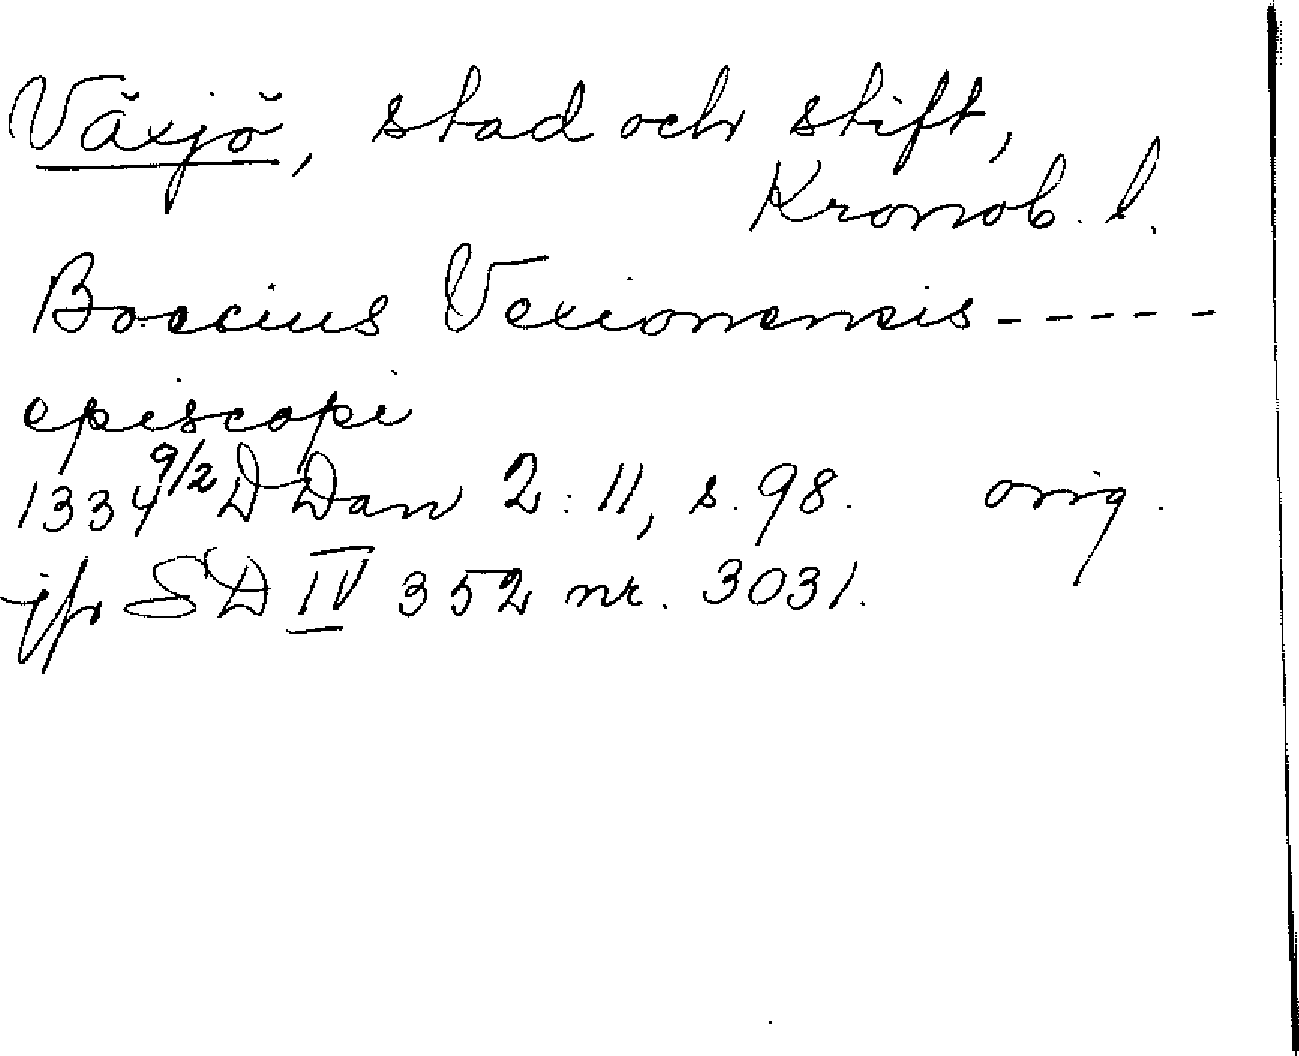 Växjö, stad och stift,
Kronob. l.
Boecius Vexionensis -----
episcopi
1334 9/2 D Dan 2:11, s. 98. orig.
jfr SD IV 352 nr. 3031.